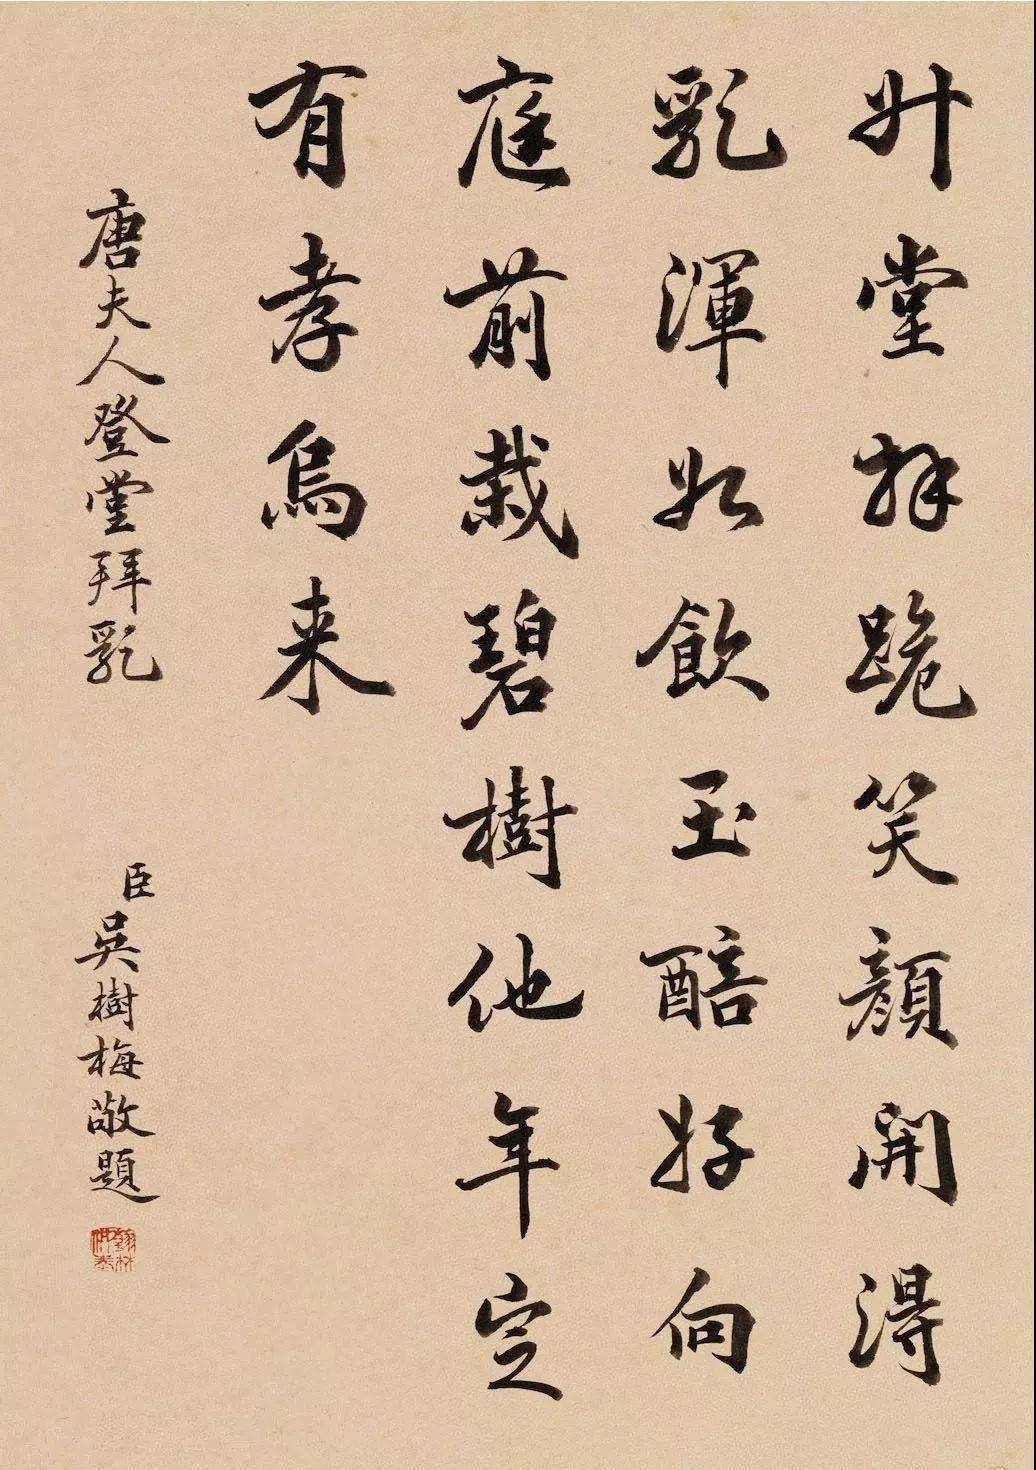 升堂拜跪笑顏開得
乳渾如飲玉醅好向
庭前栽碧樹他年定
有孝烏来
唐夫人登堂拜乳
臣吳樹梅敬題
翰林供奉